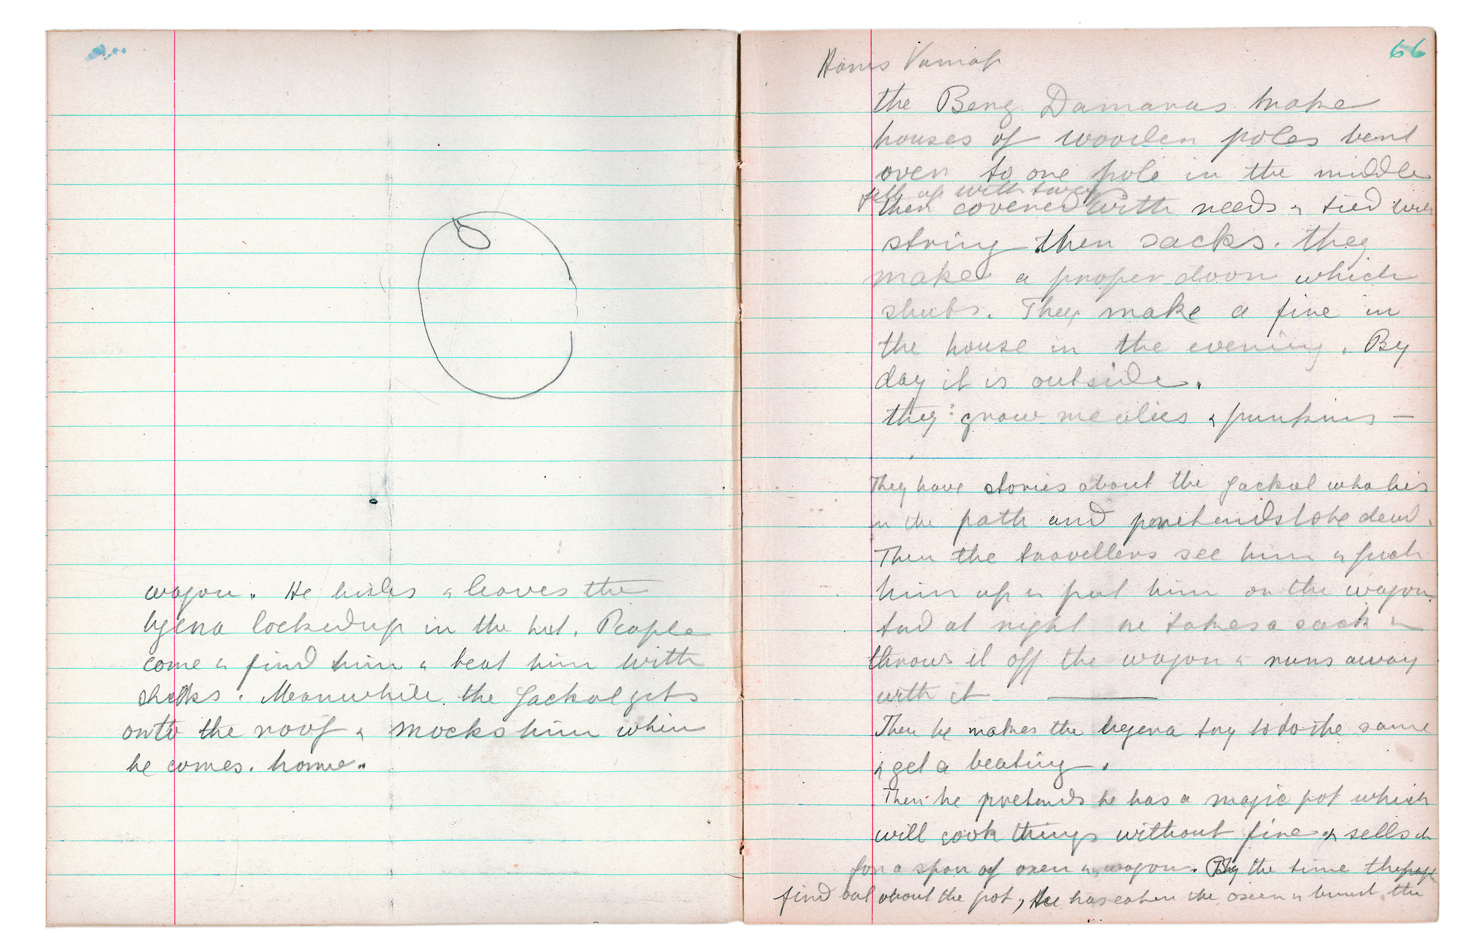 66
Hans Vaniap
the Berg Damaras make
houses of wooden poles bent
over to one pole in the middle
fill up with
then covered with reeds & tied with
string then sacks. they
make a proper door which
shuts. They make a fire in
the house in the evening. By
day it is outside.
they grow mealies & pumkins —
They have stories about the Jackal who lies
in the path and pretends to be dead.
Then the travellers see him & pick
him up & put him on the wagon.
And at night he takes a sack &
throws it off the wagon & runs away
with it
Then he makes the hyena try to do the same
& get a beating.
Then he pretends he has a magic pot which
will cook things without fire & sells it
for a span of oxen & wagon. By the time the
find out about the pot, he has eaten the oxen & burnt the
wagon. He hides & leaves the
hyena locked up in the hut. People
come & find him & beat him with
sticks. Meanwhile the Jackal gets
onto the roof & mocks him when
he comes. home.